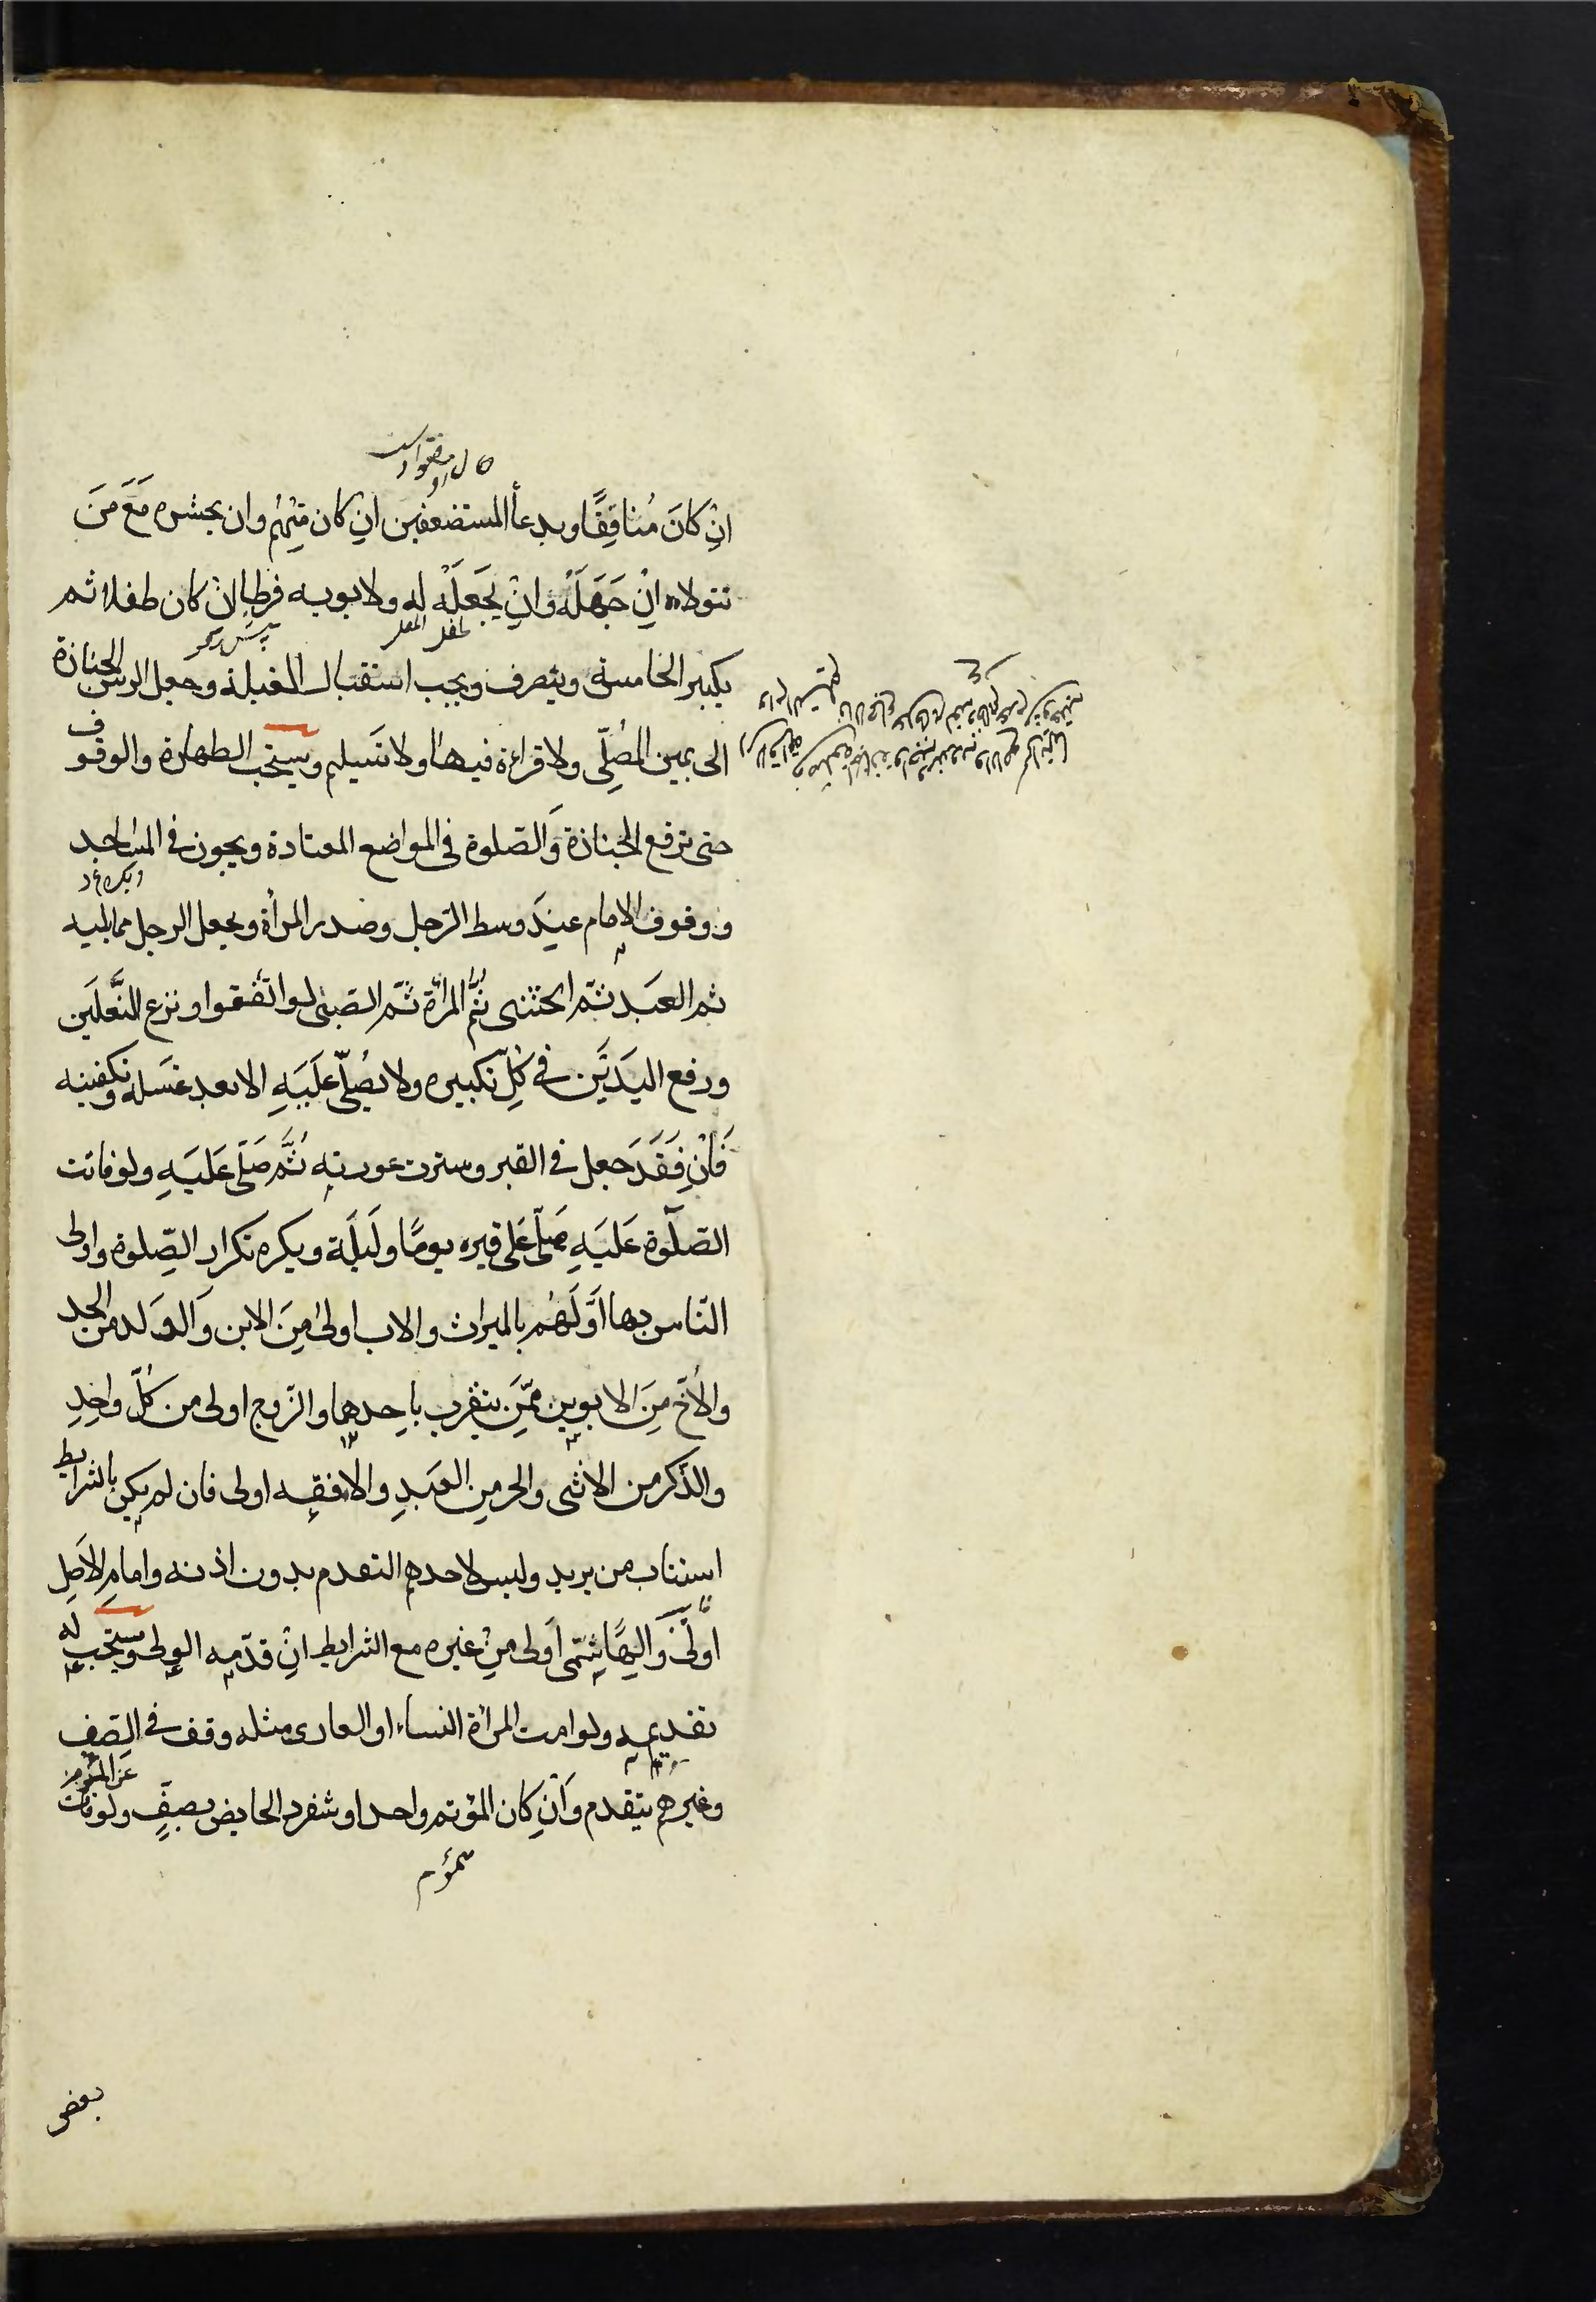 انِ كَانَ مُنافِقًا وبدعاٰ المستضعفين ان كان مِنْهُم وان يحشره مَعَ مَنَ
تتولاه انِ جَهَلَهُ وَانِ يَجَعلَهُ له ولابويه فرطا ان كان طفلا ثم
يكبر الخامسة وينصرف ويجب استقبال القبلة وجعل الرس الجنازة
الى يمين المُصَلِّى ولا قراءة فيها ولا تسيلم ويستحب الطهارة والوقوف
حتى ترفع الجنازة وَالصّلوة فى المواضع المعتادة ويجوز فى المساجد
ووقوف الامام عنِدَ وسط الرّجل وصدر المرأة ويجعل الرجل مما يليه
ثم العبَد ثمّ الخنثى ثمّ المرأة ثمّ الصّبىّ لو اتّفقوا ونزع النَّعلَين
ورفع اليدَيَن فى كُلِّ تكبيره ولا يصُلّى عَليَهِ الا بعد غسَله وتكفينه
فَانِ فقَدَ جعل فى القبر وسترت عورته ثُمَّ صَلّى عَليَهِ ولو فاتت
الصّلوة عَليَهِ صَلّى عَلى قبره يومًا ولَيلَة ويكره تكرار الصّلوة واولى
النّاس بها اوَّلَهُم بالميراث والاب اولىٰ مِنَ الابن وَالولَد من الجد
والأخ مِنَ الابوين ممّنَ يتقرب باحِدهما والزّوج اولى من كُلّ واحِدِ
والذّكر من الانثى والحر مِن العبَدِ والافقه اولى فان لم يكن بالشرايط
استناب من يريد وليس لاحدهم التقدم بدون اذنه وامام الاَصِل
اولٰى وَالهِاشِمّى اَولى مِنْ غيره مع الشرايط انِ قدّمه الولى ويستحب له
تقديمه ولو امت المراة النساء او العارى مثله وقف فى الصّف
وغيرهم يتقدم وَانِ كان المؤتم واحدا وتنفرد الحايض بصفٍّ ولو فات
عَن المأموم
بعض